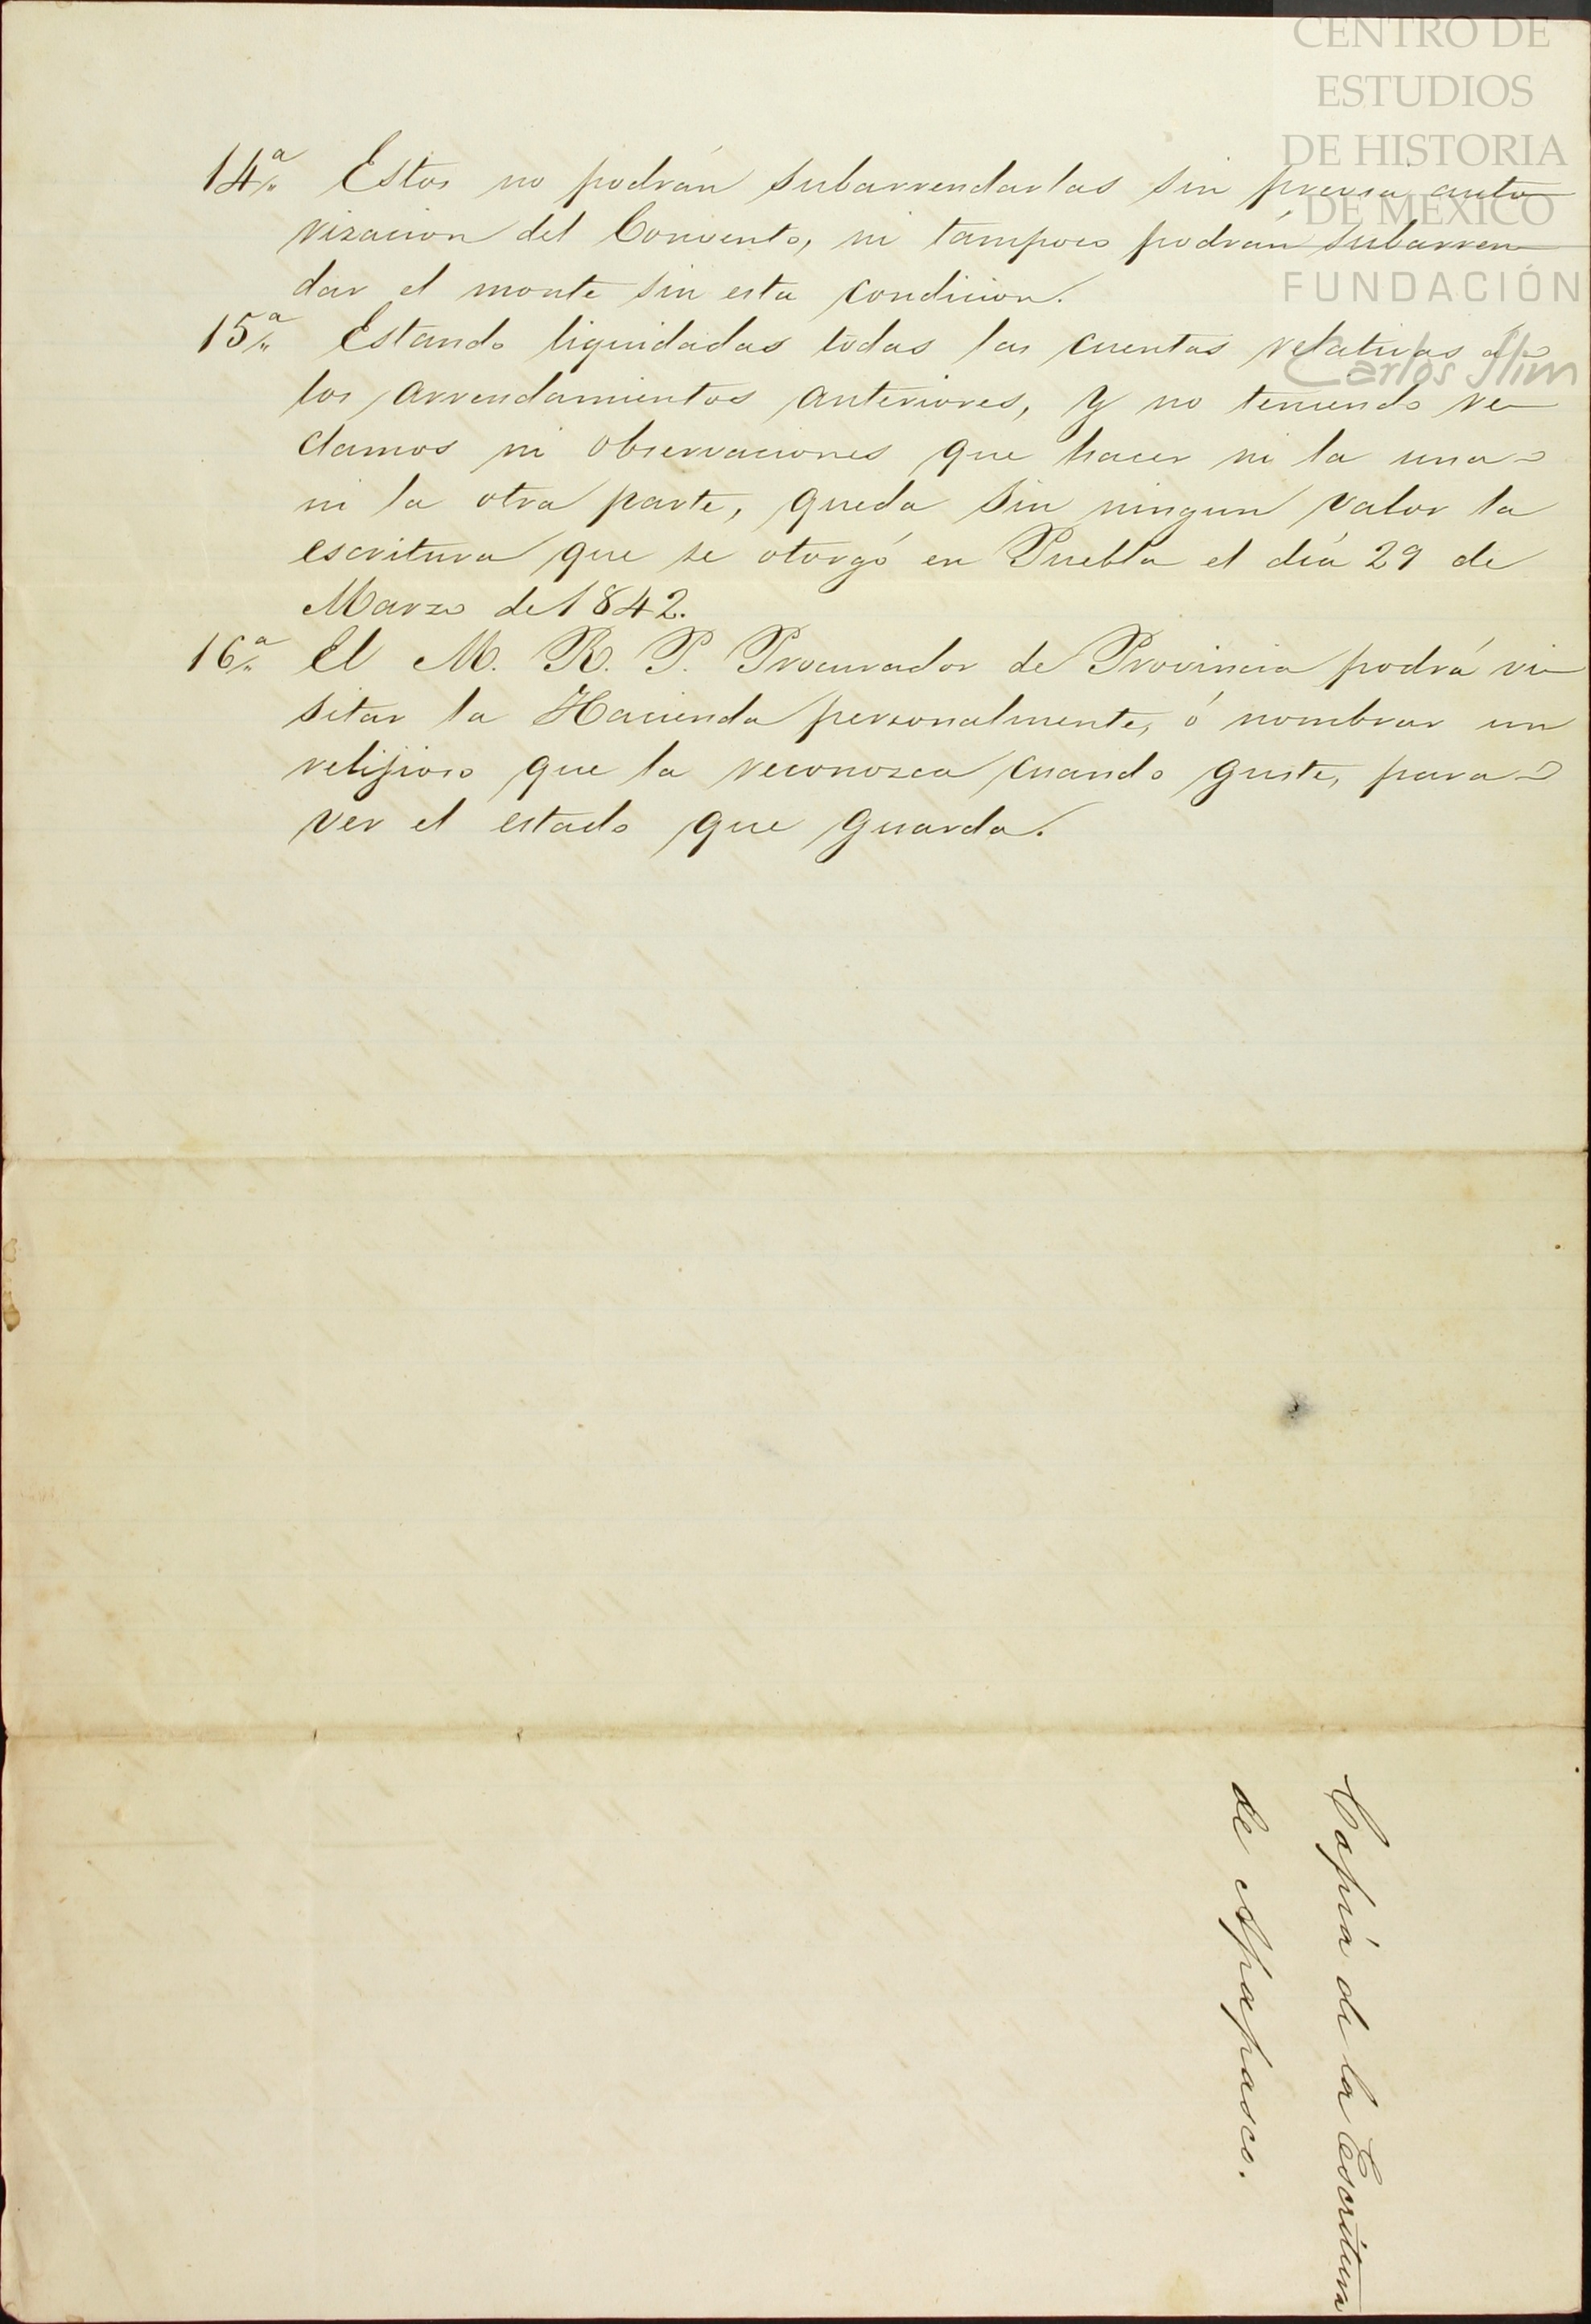 CENTRO DE
ESTUDIOS
DE HISTORIA
DE MÉXICO
FUNDACIÓN
Carlos Slim
14ª Estos no podrán subarrendarlas sin previa auto
rizacion del Convento, ni tampoco podrán subarren
dar el monte sin esta condicion.
15ª Estando liquidadas todas las cuentas relativas a
los arrendamientos anteriores, y no teniendo re
clamos ni observaciones que hacer ni la una
ni la otra parte, queda sin ningun valor la
escritura que se otorgó en Puebla el día 29 de
Marzo de 1842.
16ª El M. R. P. Procurador de Provincia podrá vi
sitar la Hacienda personalmente, ó nombrar un
relijioso que la reconozca cuando guste, para
ver el estado que guarda.
Copiá de la Escritura
de Apapasco.